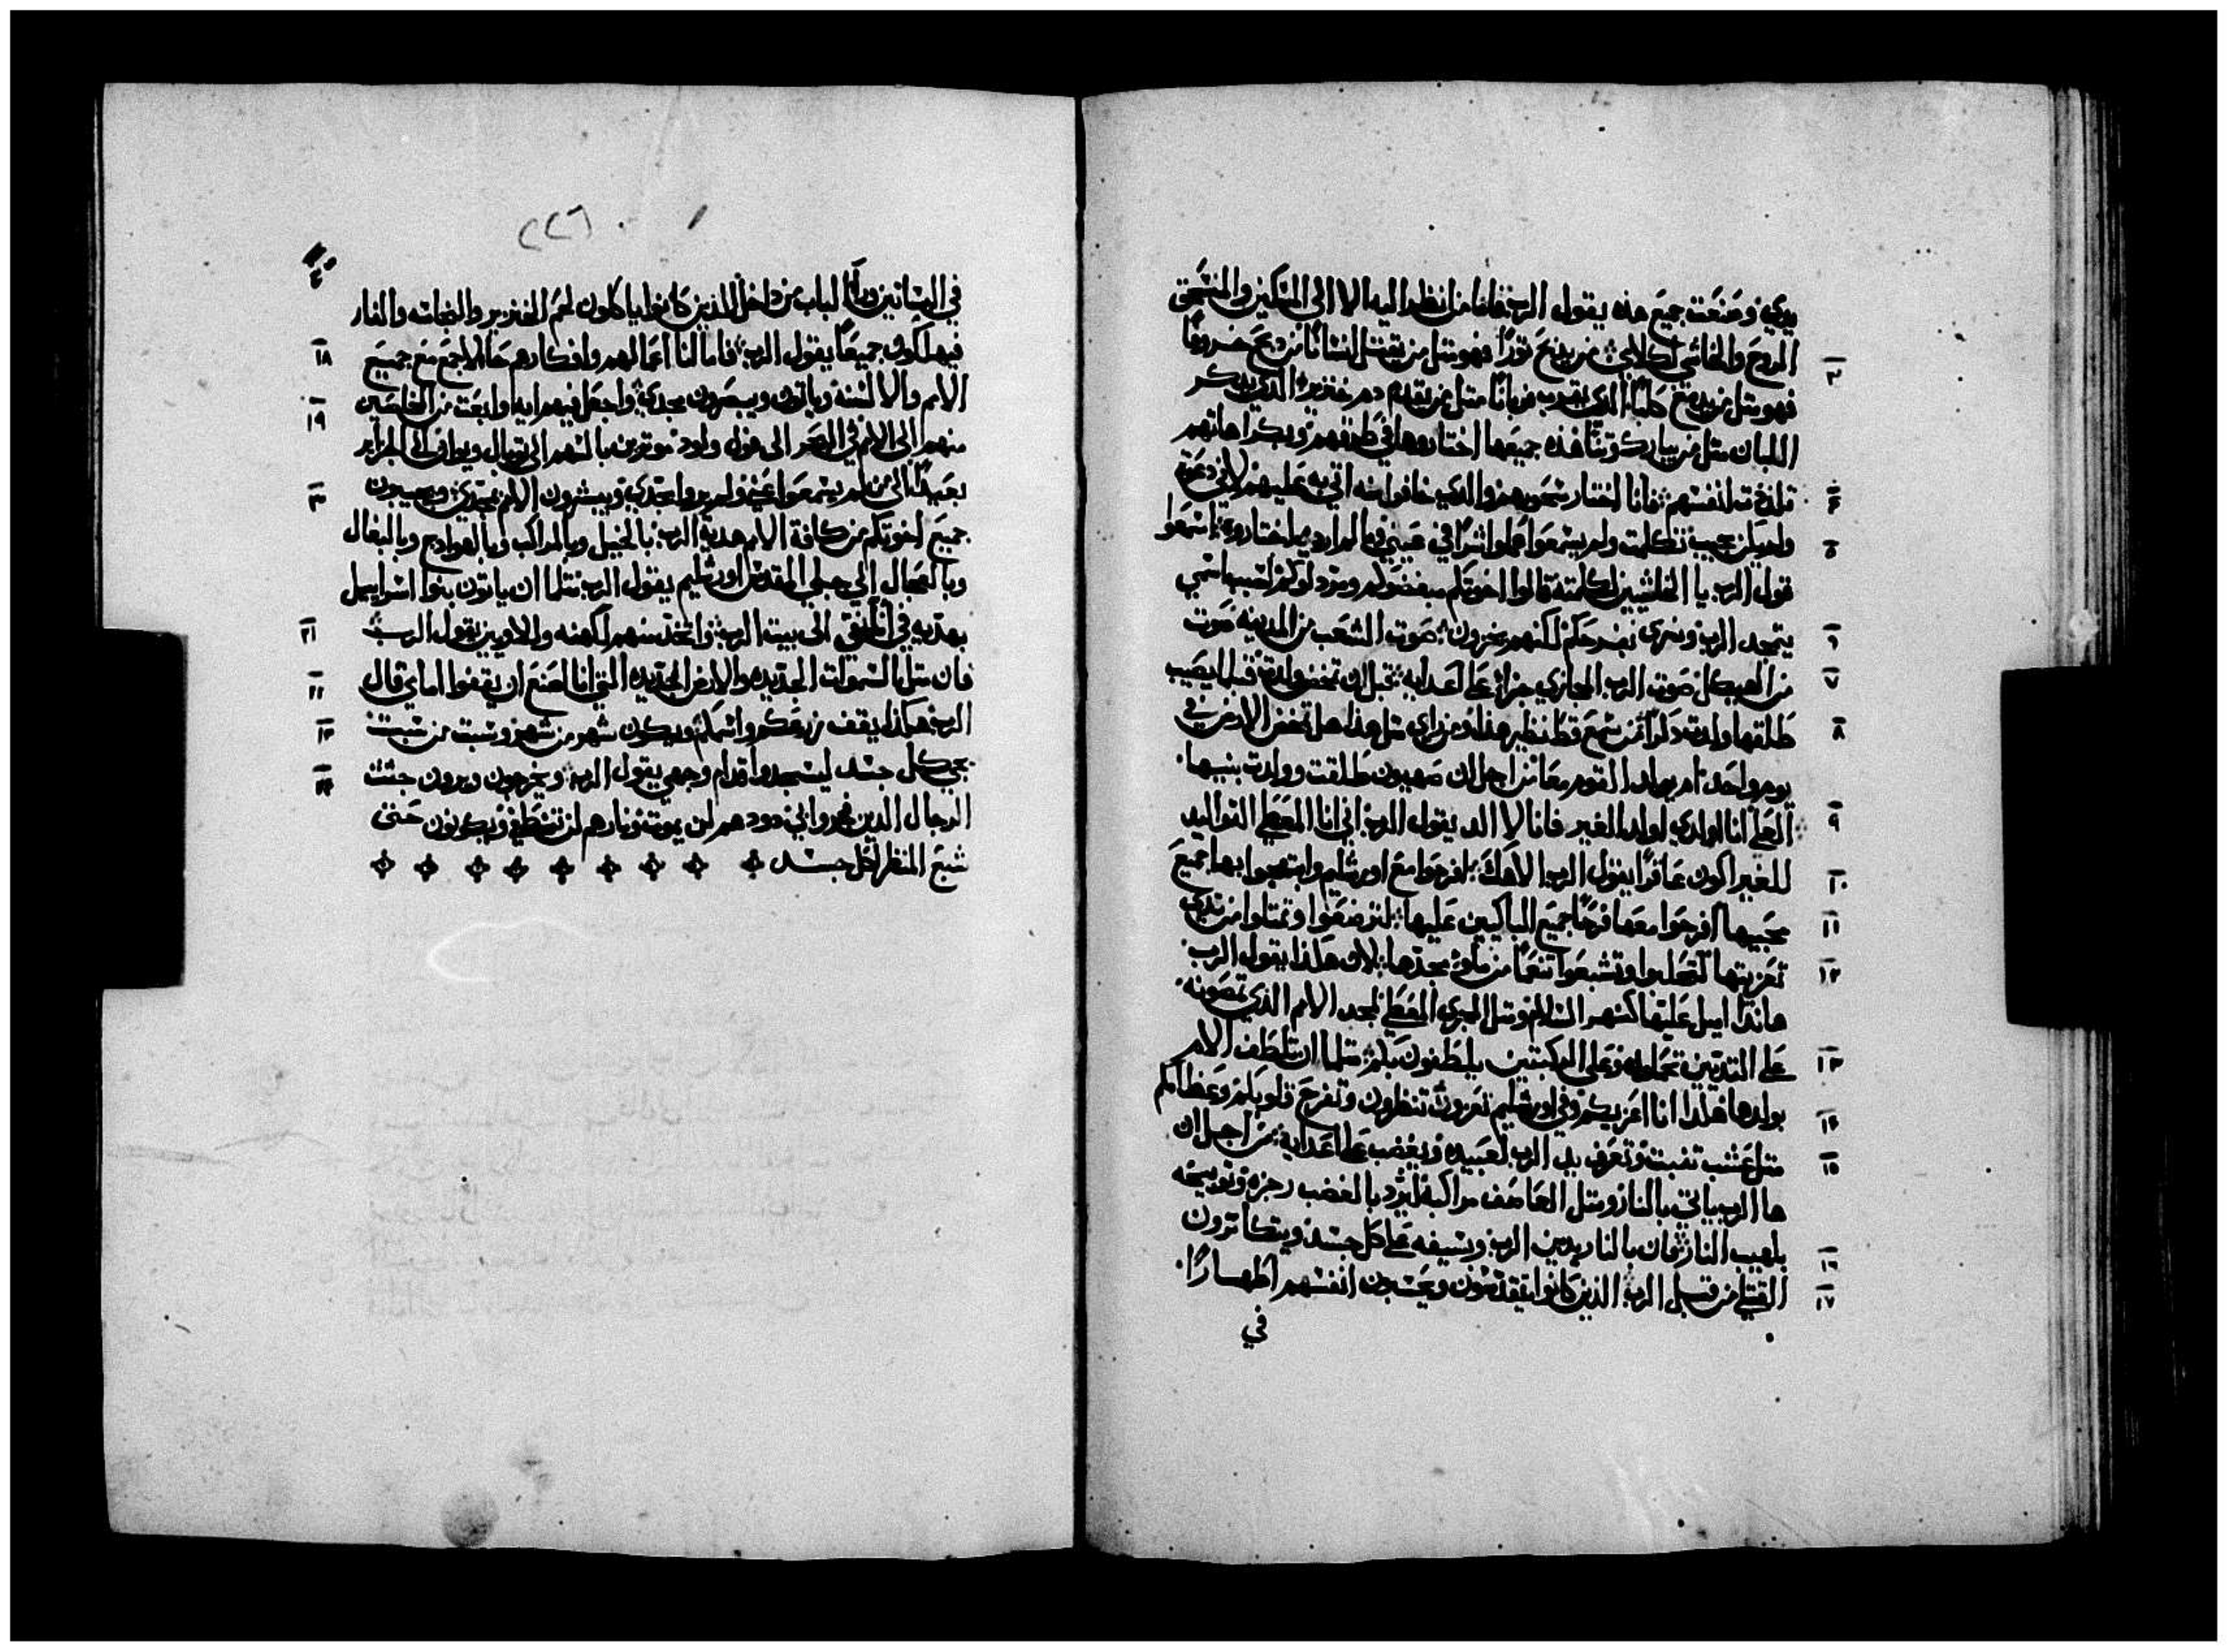 يدي وصنعت جميع هذه يقول الرب فانا من انظر اليه الا الي المسكين والمنسحق
الروح والخاشي لكلامي من يدبح تورًا فهو متل من يقتل انسانًا من دبح خروفًا
٣
فهو متل من يدبح كلبًا الذي يقرب قربانًا متل من يقدم دم خنزير الذي يدكر
اللبان متل من يبارك وتنًا هذه جميعها اختاروها في طرقهم وبكراهاتهم
تلذذت انفسهم فانا اختار سخريهم والذي خافوا منه اتي به عليهم لاني دعوتهم
٤
ولم يكن مجيب تكلمت ولم يسمعوا عملوا الشر في عيني وما لم ارده اختاروه اسمعوا
٥
قول الرب يا الخاشيين لكلمته قالوا اخوتكم مبغضوكم ومردلوكم لسبب اسمي
يتمجد الرب ونري بفرحكم لكنهم يخزون صوت الشعب من المدينه صوت
٦
من الهيكل صوت الرب المجازي جزاءً علي اعدايه قبل ان تمخض ولدت قبلما يصيب
٧
طلقها ولدت دكرًا من سمع قط نظير هذا ومن راي متل هذا هل تمخض الارض في
٨
يوم واحد ام يولد القوم معًا من اجل ان صهيون طلقت وولدت بنيها
العلي انا الدي اولد الغير فانا لا الد يقول الرب اني انا المعطي التواليد
٩
للغير اكون عاقرًا يقول الرب الاهك افرحوا مع اورشليم وابتهجوا بها جميع
١٠
محبيها افرحوا معها فرحًا جميع الباكيين عليها لترضعوا وتمتلوا من تدي
١١
تعزيتها لتحلبوا وتشبعوا تنعمًا من ملو مجدها لان هكذا يقول الرب
١٢
هانذا اميل عليها كنهر السلام ومتل المجري المغطي لمجد الامم الذي تمصونه
علي التديين تحملون وعلي الركبتين يلطفون بكم متلما ان تلطف الام
١٣
بولدها هكذا انا اعزيكم وفي اورشليم تعزون تنظرون وتفرح قلوبكم وعظامكم
١٤
متل عشب تنبت وتعرف يد الرب لعبيده ويغضب علي اعدايه من اجل ان
١٥
ها الرب ياتي بالنار ومتل العاصف مراكبه ليرد بالغضب رجزه وتوبيخه
بلهيب النار فان بالنار يدين الرب وبسيفه علي كل جسد ويتكاترون
١٦
القتلي من قبل الرب الذين كانوا يتقدسون ويحسبون انفسهم اطهارًا
١٧
في
٢٢٦
في البساتين ورآ الباب من داخل الذين كانوا ياكلون لحم الخنزير والنجاسه والفار
فيهلكون جميعًا يقول الرب فاما انا اعمالهم وافكارهم حالًا لاجمع مع جميع
١٨
الامم والالسنة وياتون ويبصرون مجدي واجعل فيهم ايه وابعت من الخالصين
١٩
منهم الي الامم في البحر الي فول ولود موترين بالسهم الي توبال ويونان الي الجزاير
بعيدًا الي من لم يسمعوا عني ولم يروا مجدي ويبشرون الامم بمجدي ويجيبون
٢٠
جميع اخوتكم من كافة الامم هدية الرب بالخيل وبالمراكب وبالهوادج وبالبغال
وبالعجال الي جبلي المقدس اورشليم يقول الرب متلما ان ياتون بنوا اسراييل
بهديه في انآ نقي الي بيت الرب واتخذ منهم لكهنه والاويين يقول الرب
٢١
فان متلما السموات الجديده والارض الجديده التي انا اصنع ان يقفوا امامي قال
٢٢
الرب هكذا يقف زرعكم واسمكم ويكون شهر من شهر وسبت من سبت
٢٣
يجي كل جسد ليسجدوا قدام وجهي يقول الرب ويخرجون ويرون جتت
٢٤
الرجال الدين فجروا بي دودهم لن يموت ونارهم لن تنطفي ويكونون حتي
شبع المنظر لكل جسد